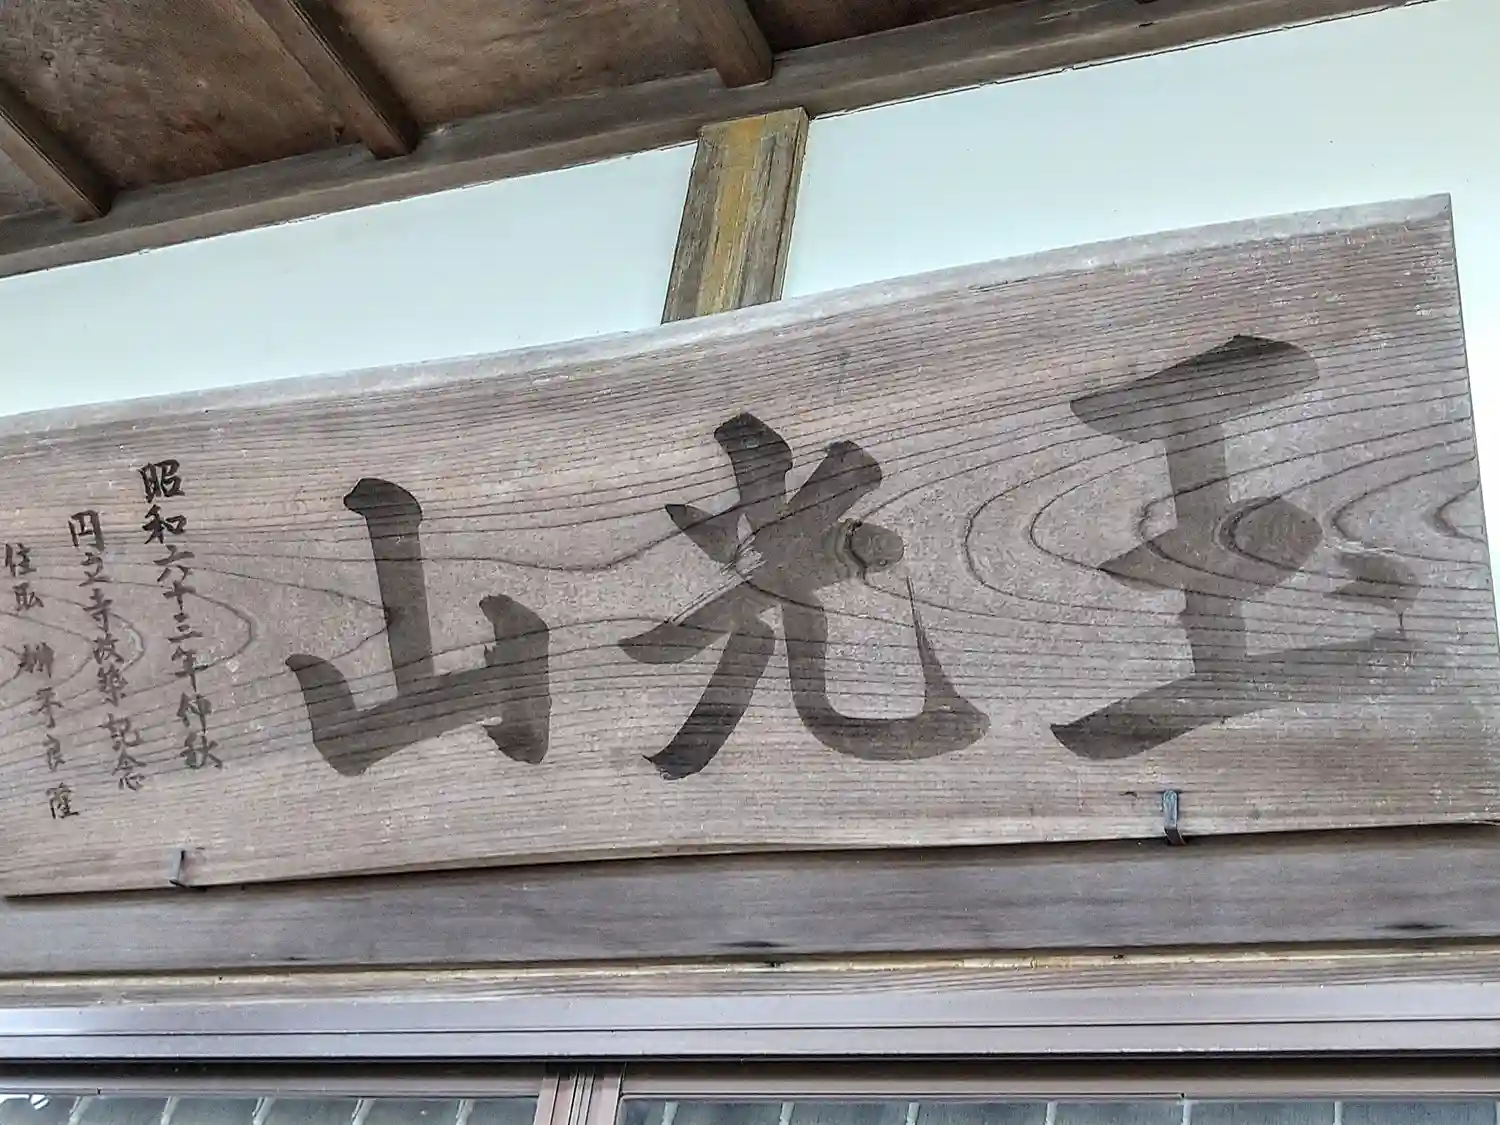 玉光山
昭和六十三年仲秋
円立寺改築記念
住職 良隆